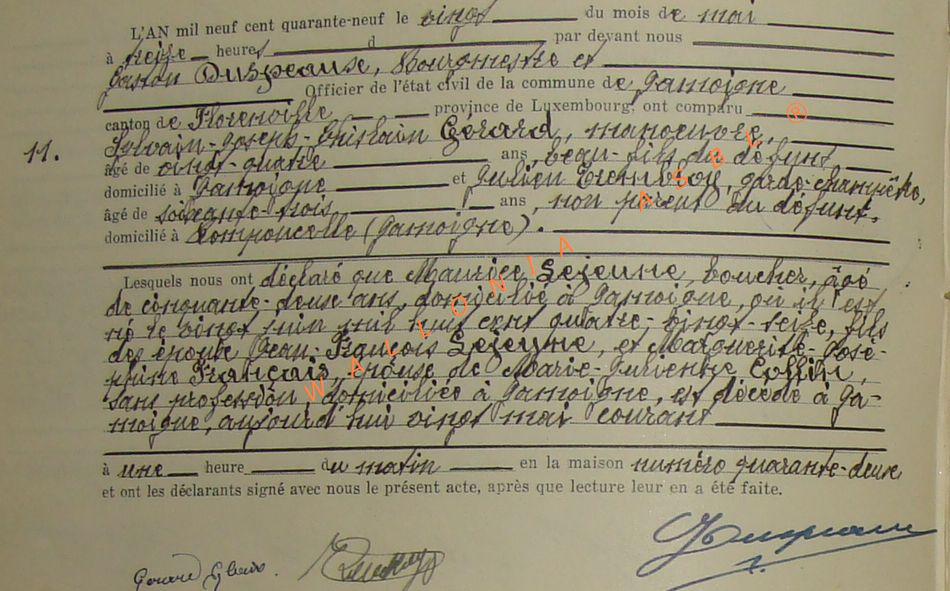 L'AN mil neuf cent quarante-neuf le vingt du mois de mai
à treize heures d par devant nous
Gaston Duspeaux, Bourgmestre et
Officier de l'état civil de la commune de Jamoigne
canton de Florenville province de Luxembourg, ont comparu
Sylvain-Joseph-Ghislain Gérard, manoeuvre,
11.
âgé de vingt-quatre ans, beau-fils du défunt,
domicilié à Jamoigne et Julien garde-champêtre,
âgé de soixante-trois ans, non parent du défunt.
domicilié à Romponcelle (Jamoigne).
Lesquels nous ont déclaré que Maurice Lejeune, boucher, âgé
de cinquante-deux ans, domicilié à Jamoigne, où il est
né le vingt juin mil huit cent quatre-vingt-seize, fils
des époux Jean-François Lejeune, et Marguerite-José-
phine Français, époux de Marie-Julienne Collin,
sans profession, domiciliée à Jamoigne, est décédé à Ja-
moigne, aujourd'hui vingt mai courant
à une heure du matin en la maison numéro quarante-deux
et ont les déclarants signé avec nous le présent acte, après que lecture leur en a été faite.
WALLONIA ASBL ®
Gérard